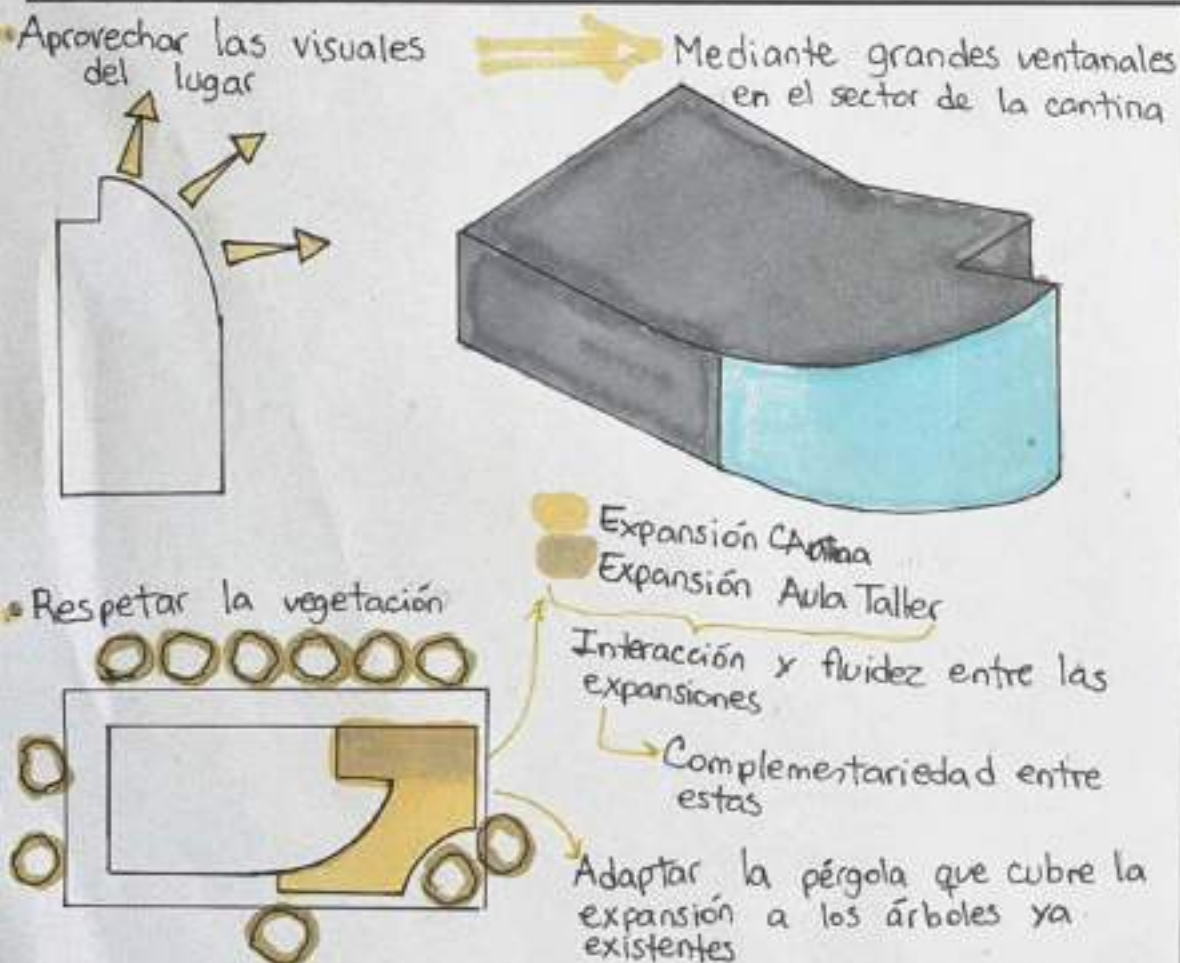 Aprovechar las visuales
del lugar
Mediante grandes ventanales
en el sector de la cantina
Expansión CAntina
Expansión Aula Taller
Respetar la vegetación
Interacción y fluidez entre las
expansiones
Complementariedad entre
estas
Adaptar la pérgola que cubre la
expansión a los árboles ya
existentes